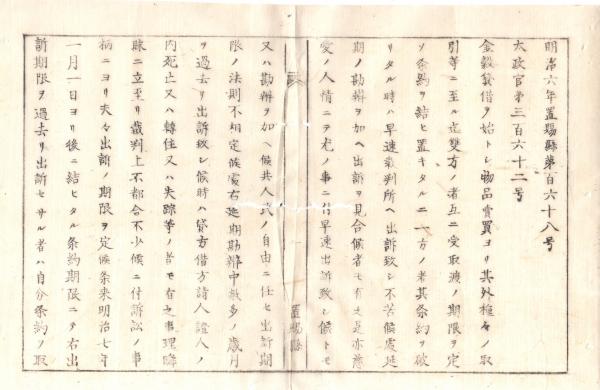 明治六年置賜縣第百六十八号
太政官第三百六十二号
金穀貸借ヲ始トシ物品賣買ヨリ其外種々ノ取
引等ニ至ル迠雙方ノ者互ニ受取渡ノ期限ヲ定
ソ条約ヲ結ヒ置キタルニ一方ノ者其条約ヲ破
リタル時ハ早速裁判所ヘ出訴致シ不苦候處延
期ノ勘辨ヲ加ヘ出訴ヲ見合候者モ有之是亦慈
愛ノ人情ニテ尤ノ事ニ付早速出訴致シ候トモ
置賜縣
又ハ勘辨ヲ加ヘ候共人民ノ自由ニ任セ出訴期
限ノ法則不相定候處右延期勘辨中数多ノ歳月
ヲ過去リ出訴致シ候時ハ貸方借方請人證人ノ
内死亡又ハ轉住又ハ失踪等ノ者モ有之事理曖
昧ニ立至リ裁判上不都合不少候ニ付訴訟ノ事
柄ニヨリ夫々出訴ノ期限ヲ定候条来明治七年
一月一日ヨリ後ニ結ヒタル条約期限ニテ右出
訴期限ヲ過去リ出訴セサル者ハ自分条約ノ取